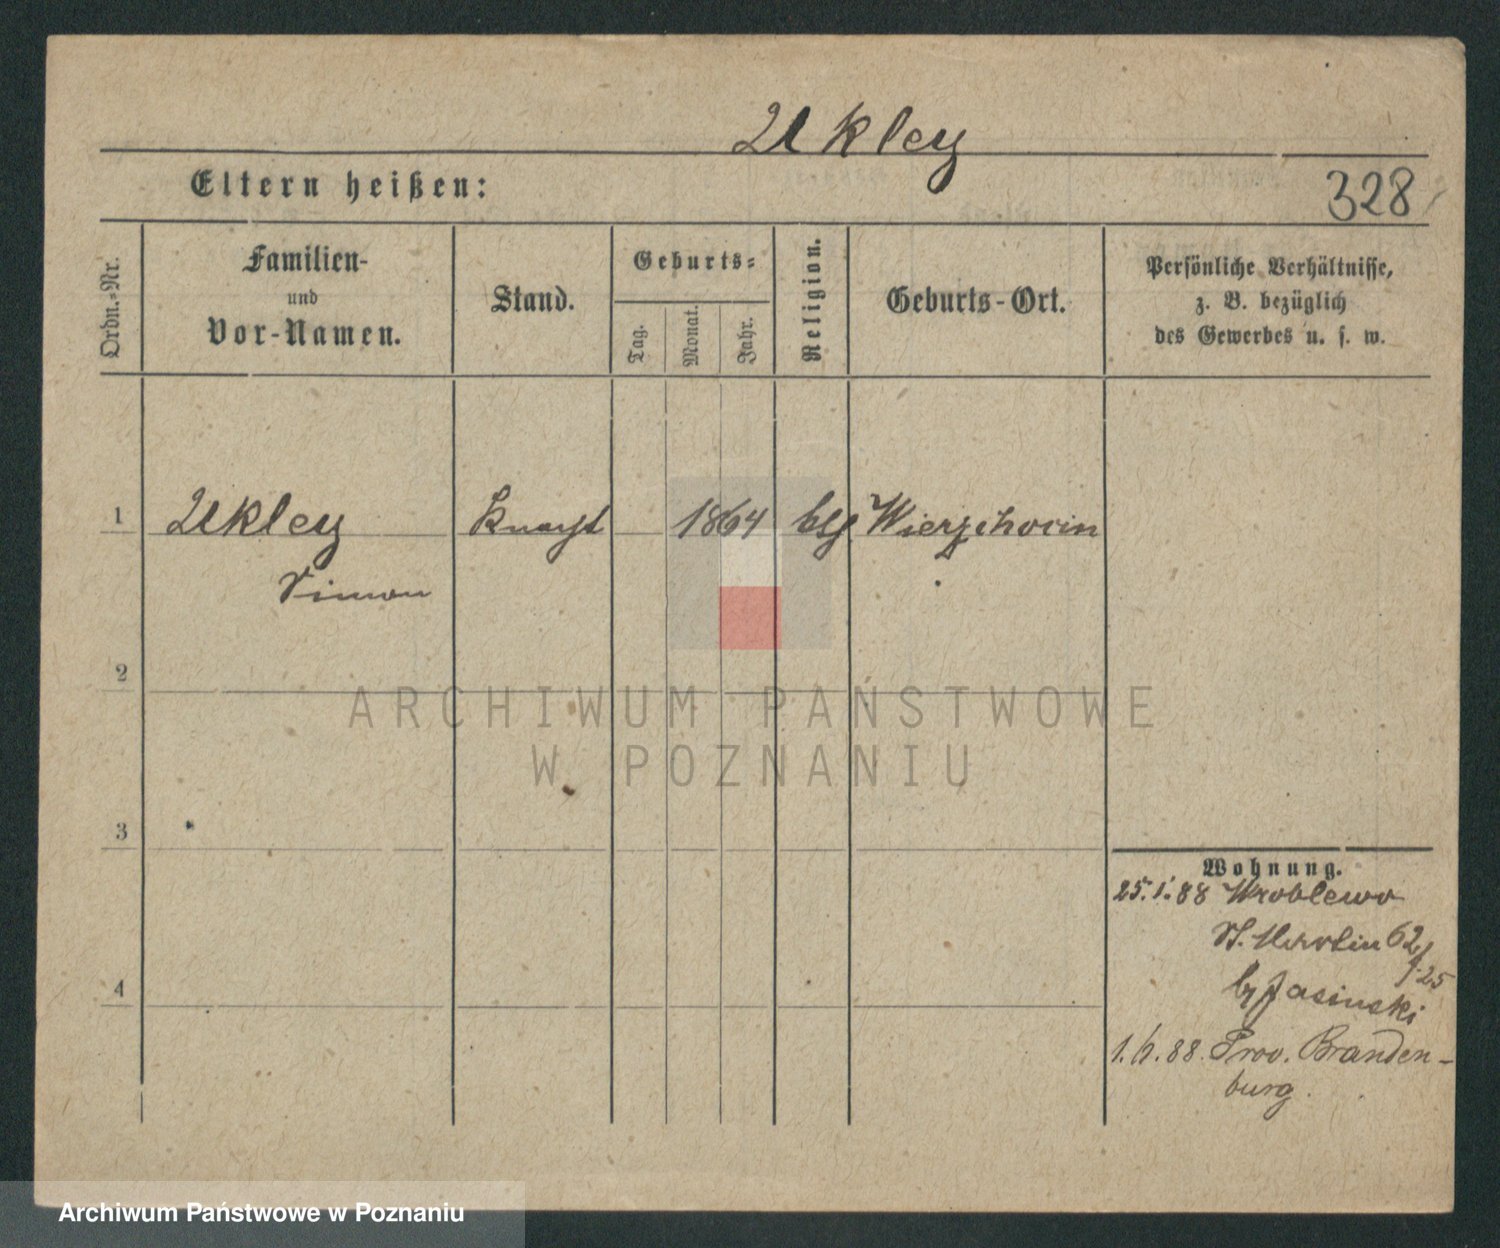 Ukley
Eltern heißen:
328
Ordn.-Nr.
Familien-
und
Vor-Namen.
Stand.
Geburts-
Tag.
Monat.
Jahr.
Religion.
Geburts-Ort.
Persönliche Verhältnisse,
z. B. bezüglich
des Gewerbes u. s. w.
1 Ukley Knecht 1864 Wierzchocin
Simon
2
3
4
Wohnung.
25.1.88 Wroblewo
St. Martin 62/
25
b/ Jasinski
1.6.88. Prov. Branden-
burg.
ARCHIWUM PAŃSTWOWE
W POZNANIU
Archiwum Państwowe w Poznaniu